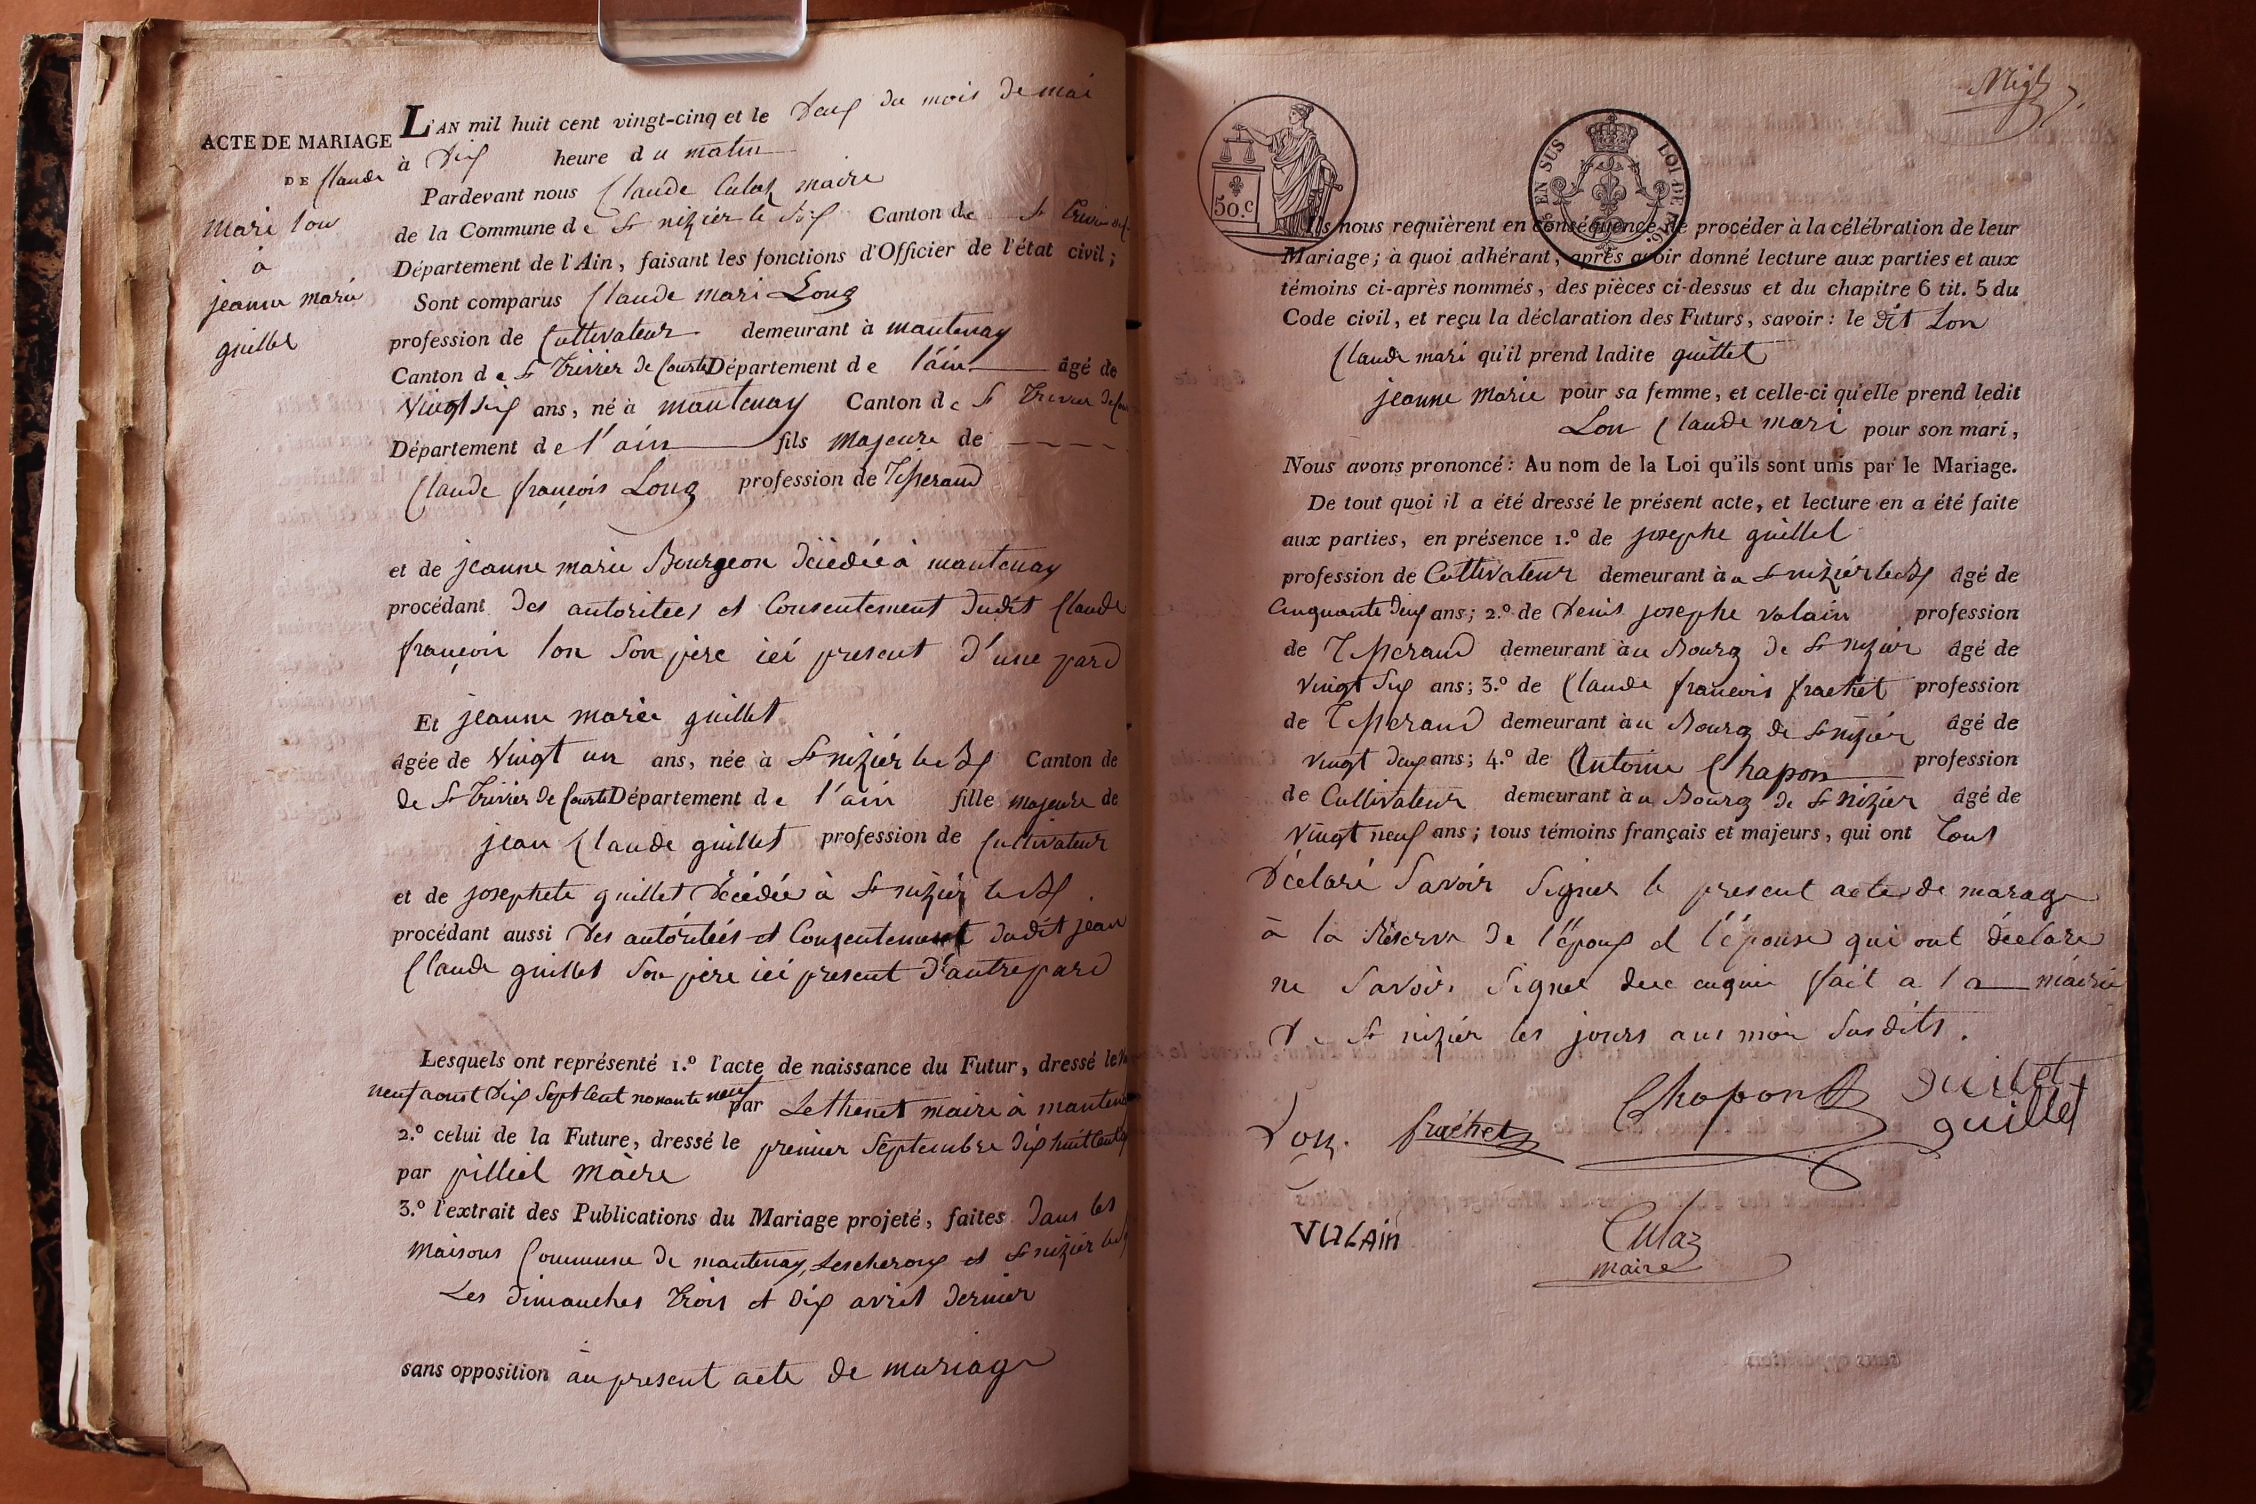 ACTE DE MARIAGE
DE Claude
mari lon
à
jeanne marie
guillet
L'AN mil huit cent vingt-cinq et le Deux du mois de mai
à Dix heure du matin
Pardevant nous Claude Culaz maire
de la Commune de St nizier le Bx Canton de St
Département de l'Ain, faisant les fonctions d'Officier de l'état civil;
Sont comparus Claude mari Long
profession de Cultivateur demeurant à mantenay
Canton de St Trivier de Courte Département de l'ain âgé de
Vingt six ans, né à mantenay Canton de St Trivier de
Département de l'ain fils majeure de
Claude françois Long profession de Tisserand
et de jeanne marie Bourgeon décédée à mantenay
procédant des autoritees et Consentement dudit Claude
françois lon Son père ici present d'une pard
Et jeanne mariee guillet
âgée de Vingt un ans, née à St nizier le Bx Canton de
de St Trivier de Courte Département de l'ain fille majeure de
jean Claude guillet profession de Cultivateur
et de josephete guillet Décédée à St nizier le Bx
procédant aussi des autoritées et Consentement dudit jean
Claude guillet Son père ici present d'autre pard
Lesquels ont représenté 1.º l'acte de naissance du Futur, dressé le
neuf aoust Dix Sept Cent nonante neuf par Lethenet maire à mantenay
2.º celui de la Future, dressé le premier Septembre Dix huit Cent
par pilliet maire
3.º l'extrait des Publications du Mariage projeté, faites dans les
maisons Commune de mantenay, Lescheroux et St nizier le Bx
Les dimanches trois et dix avril dernier
sans opposition au present acte de mariage
50.C
EN SUS LOI DE 1816.
Ils nous requièrent en conséquence de procéder à la célébration de leur
Mariage; à quoi adhérant, après avoir donné lecture aux parties et aux
témoins ci-après nommés, des pièces ci-dessus et du chapitre 6 tit. 5 du
Code civil, et reçu la déclaration des Futurs, savoir: le dit Lon
Claude mari qu'il prend ladite guillet
jeanne marie pour sa femme, et celle-ci qu'elle prend ledit
Lon Claude mari pour son mari,
Nous avons prononcé: Au nom de la Loi qu'ils sont unis par le Mariage.
De tout quoi il a été dressé le présent acte, et lecture en a été faite
aux parties, en présence 1.º de josephe guillet
profession de Cultivateur demeurant à a St nizier le Bx âgé de
Cinquante deux ans; 2.º de Denis josephe valain profession
de Tisserand demeurant à u Bourg de St nizier âgé de
Vingt Six ans; 3.º de Claude francois frachet profession
de Tisserand demeurant à u Bourg de St nizier âgé de
vingt deux ans; 4.º de Antoine Chapon profession
de Cultivateur demeurant à u Bourg de St nizier âgé de
Vingt neuf ans; tous témoins français et majeurs, qui ont tous
Déclaré Savoir Signer le present acte de marage
à la Réserve de l'époux et l'épouse qui ont déclaré
ne Savoir Signer de fait a la mairie
De St nizier les jours ans moir Susdits.
Lon. frachet Chapon guillet
guillet
VULAin Culaz
maire